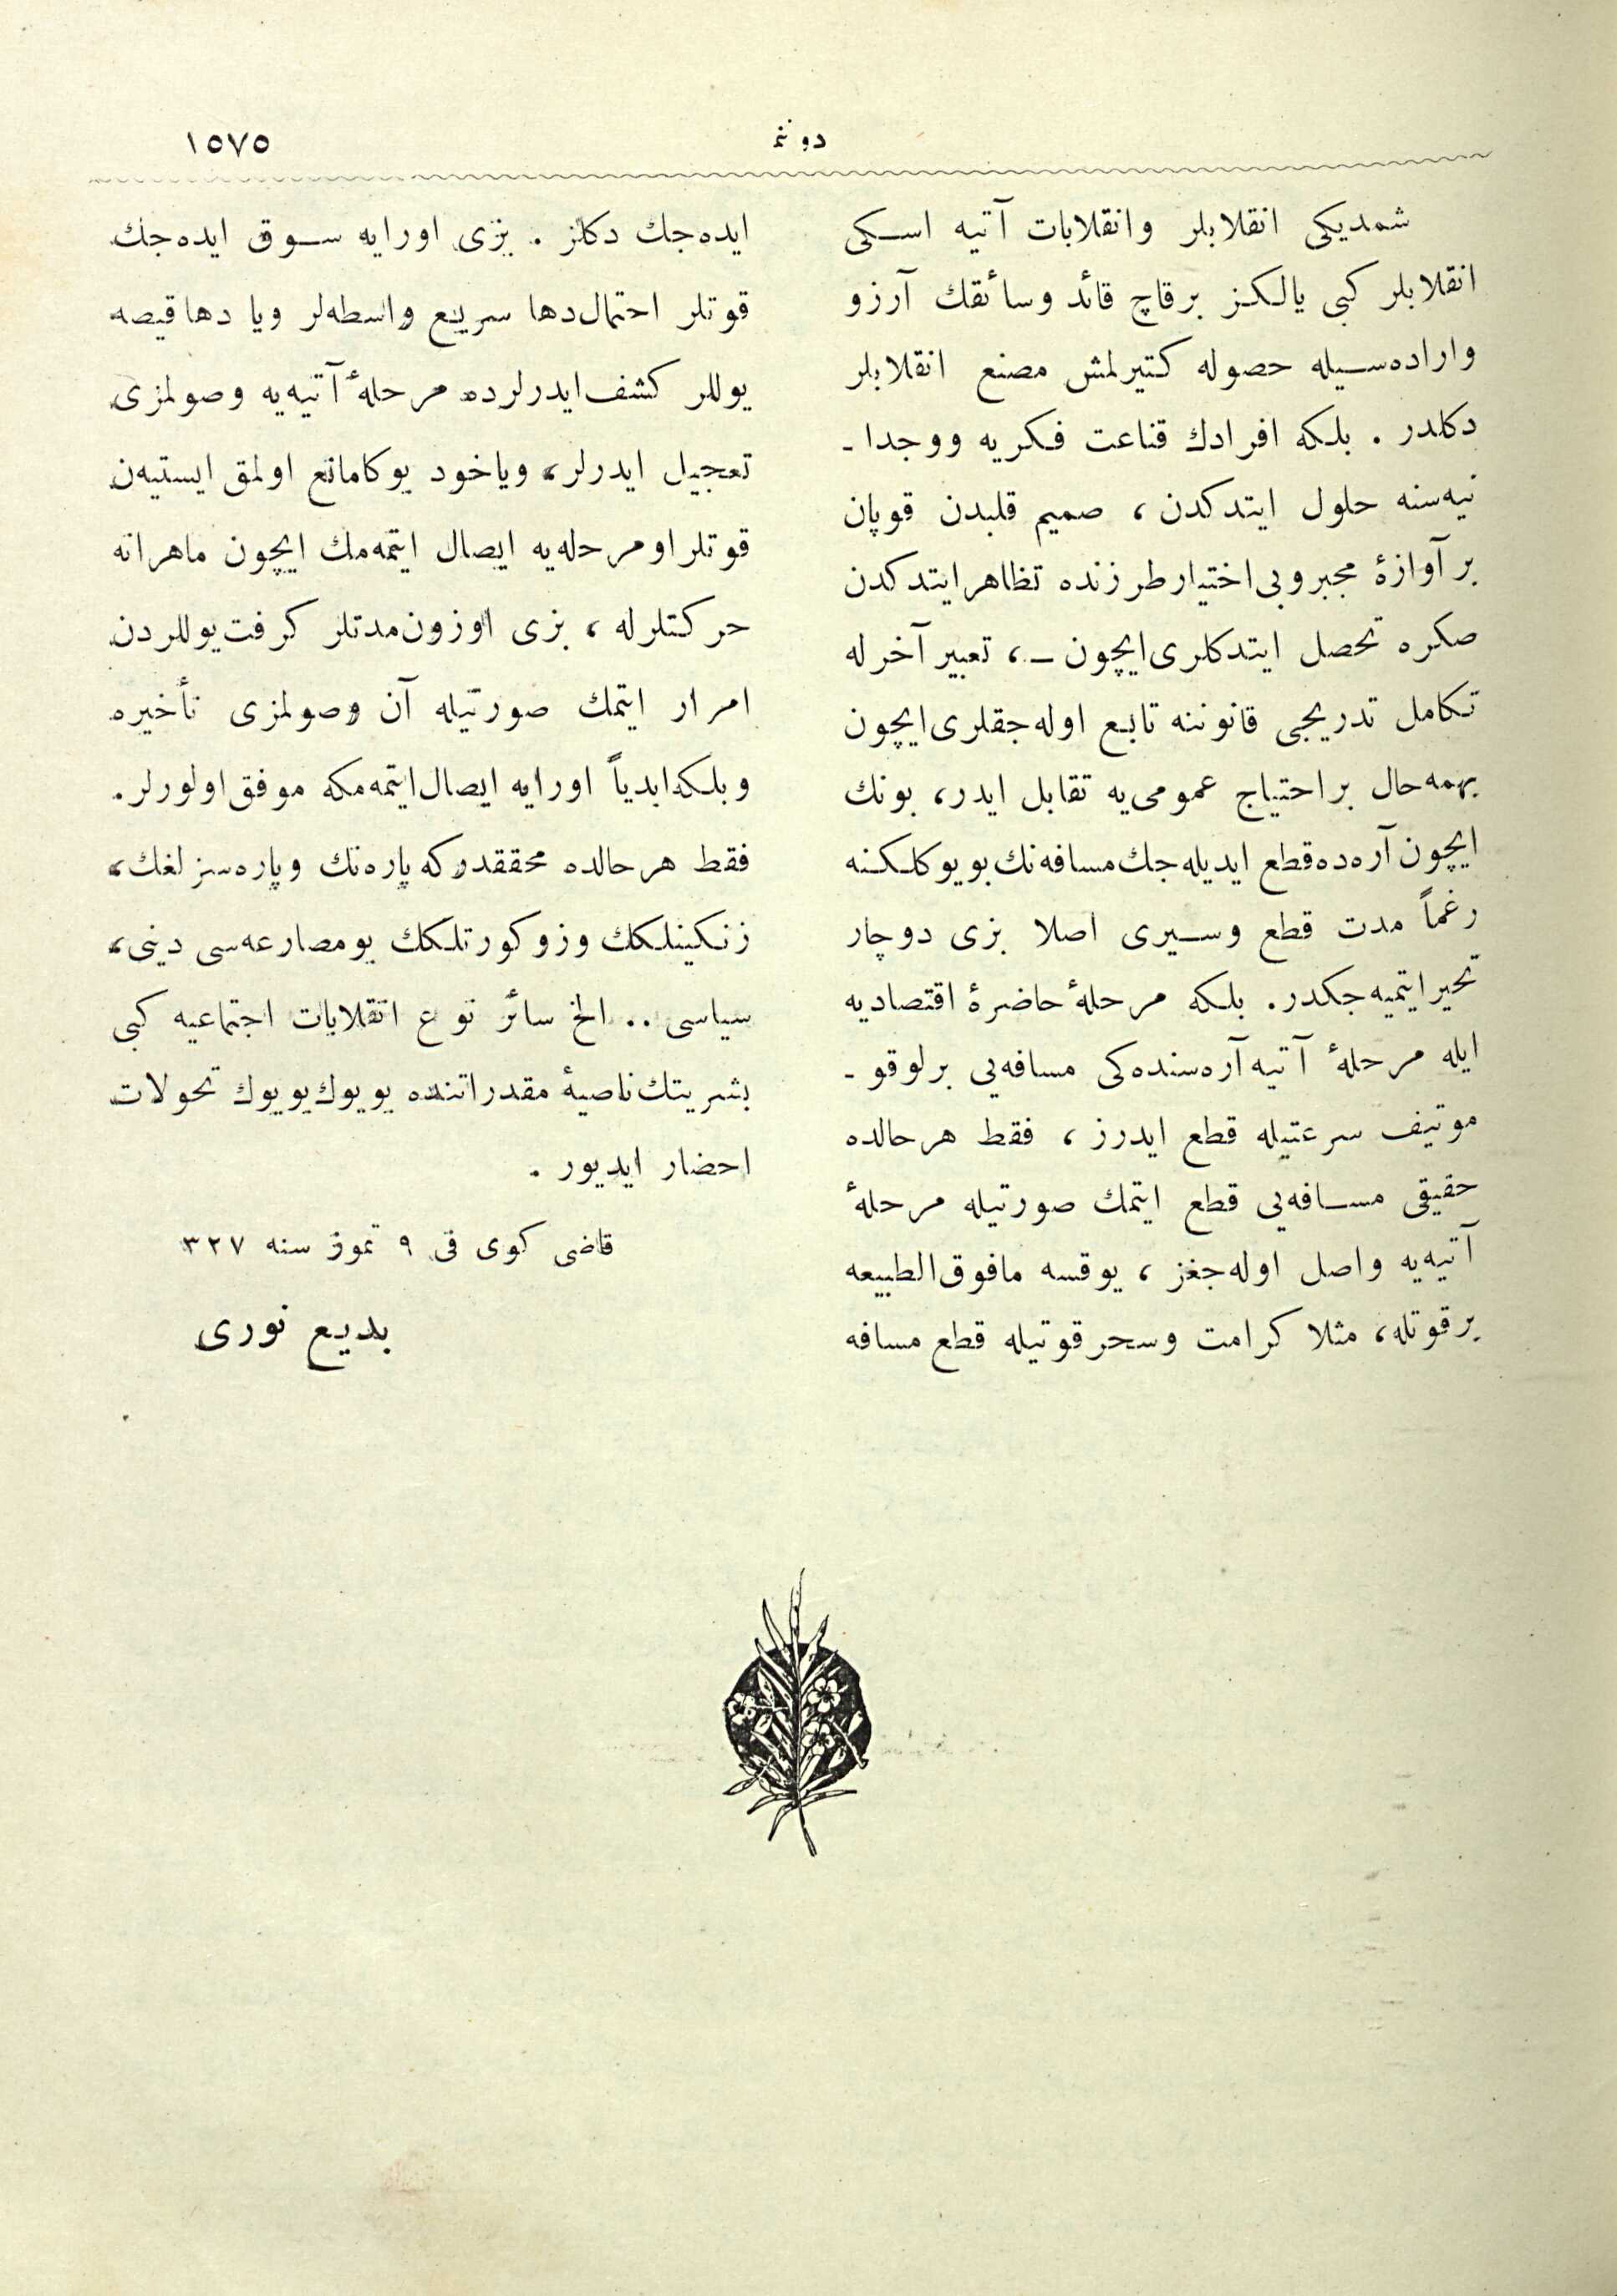 دونم
١٥٧٥
شمديكى انقلابلر وانقلابات آتيه اسكى
انقلابلر كبى يالكز برقاچ قائد وسائقك آرزو
واراده‌سيله حصوله كتيرلمش مصنع انقلابلر
دكلدر . بلكه افرادك قناعت فكريه ووجدا -
نيه‌سنه حلول ايتدكدن ، صميم قلبدن قوپان
بر آوازۀ مجبروبى اختيار طرزنده تظاهر ايتدكدن
صكره تحصل ايتدكلرى ايچون – ، تعبير آخرله
تكامل تدريجى قانوننه تابع اوله‌جقلرى ايچون
بهمه‌حال بر احتياج عمومى‌يه تقابل ايدر، بونك
ايچون آره‌ده قطع ايديله‌جك مسافه‌نك بويوكلكنه
رغماً مدت قطع وسيرى اصلا بزى دوچار
تحير ايتميه‌جكدر. بلكه مرحلۀ حاضرۀ اقتصاديه
ايله مرحلۀ آتيه آره‌سنده‌كى مسافه‌يى برلوقو -
موتيف سرعتيله قطع ايدرز ، فقط هر حالده
حقيقى مسافه‌يى قطع ايتمك صورتيله مرحلۀ
آتيه‌يه واصل اوله‌جغز ، يوقسه مافوق الطبيعه
برقوتله، مثلا كرامت وسحر قوتيله قطع مسافه
ايده‌جك دكلز . بزى اورايه سوق ايده‌جك
قوتلر احتمال دها سريع واسطه‌لر ويا دها قيصه
يوللر كشف ايدرلرده مرحلۀ آتيه‌يه وصولمزى
تعجيل ايدرلر، وياخود بوكا مانع اولمق ايستيه‌ن
قوتلر او مرحله‌يه ايصال ايتمه‌مك ايچون ماهرانه
حركتلرله ، بزى اوزون مدتلر كرفت يوللردن
امرار ايتمك صورتيله آن وصولمزى تأخيره
وبلكه ابدياً اورايه ايصال ايتمه‌مكه موفق اولورلر.
فقط هر حالده محققدركه پاره‌نك وپاره‌سزلغك،
زنكينلكك وزوكورتلكك بومصارعه‌سى دينى،
سياسى .. الخ سائر نوع انقلابات اجتماعيه كبى
بشريتك ناصيۀ مقدراتنده بويوك بويوك تحولات
احضار ايديور .
قاضى كوى فى ٩ تموز سنه ٣٢٧
بديع نورى